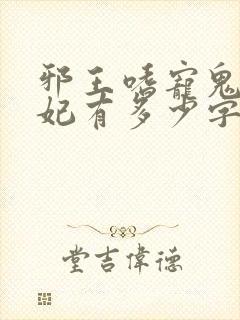 邪王嗜寵鬼
妃有多少字
堂吉偉德